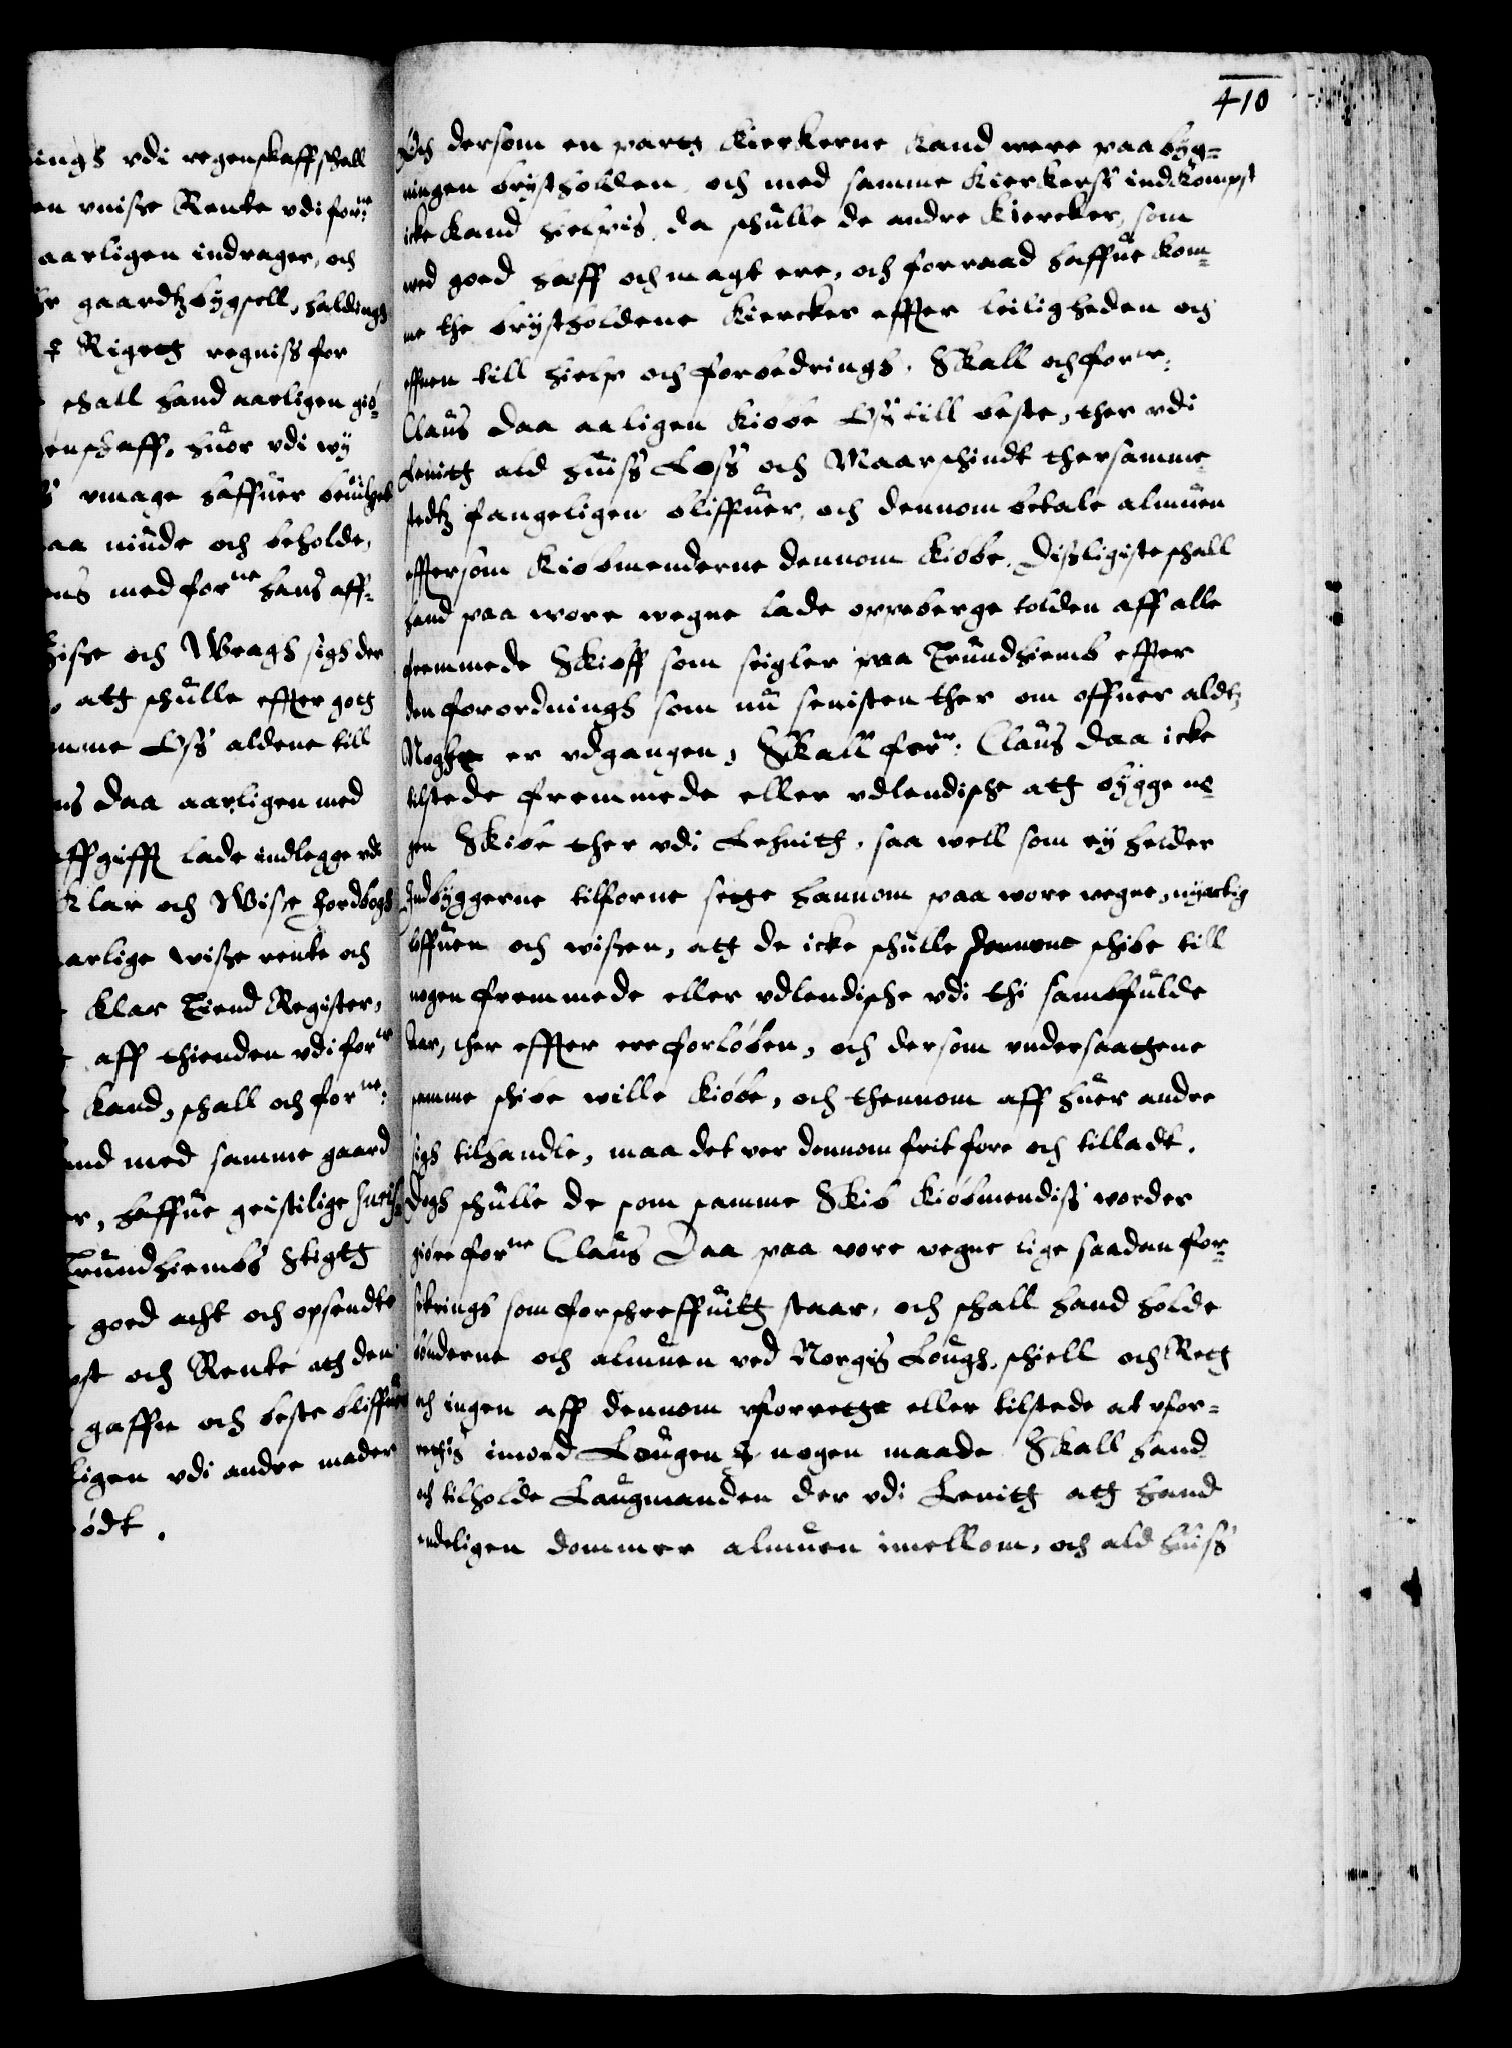 410
ings vdi regenskaff schall
en vnisze Rente vdi forne
aarligen indrager, och
gaardtzbygsell, haldings
Rigett regnis for
schall hand aarligen giø-
enschaff, huor vdi wy
vmage haffuer beuilget
aa niude och beholde,
ens med forne hans aff-
hisze och Wragh sigh der
att schulle effter gott
amme Oss aldene till
ns daa aarligen med
affgifft lade indlegge vdi
klar och Wisse Jordbogh
arlige wisze rente och
klar Tiend Register,
aff thienden vdi forne
kand, schall och forne:
and med samme gaard
er, haffue geistlige Juris-
Trundhiembs Stigtt
goed acht och opsende
pst och Rente att den
gaffn och beste bliffuer
ligen vdi andre mader
ødt.
Och dersom en partt Kierkerne kand were paa byg-
ningen brystholden, och med samme Kierkerss indkompst
icke kand hielpis, da schulle de andre Kiercker, som
wed goed haff och magt ere, och forraad haffue kom-
me the brystholdene Kiercker effter leiligheden och
effnen till hielp och forbedrings. Skall och forne:
Claus daa aaligen kiøbe Oss till beste, ther vdi
Lenitt ald huiss Loss och Maarschindt thersamme-
stedtz fangeligen bliffuer, och dennom betale almuen
efftersom Kiøbmenderne dennom kiøbe. Disligiste schall
hand paa wore wegne lade oppeberge tolden aff alle
fremmede Skiff som seigler paa Trundhiemb effter
den forordnings som nu senisten ther om offuer aldtz
Noghe er vdgangen, Skall forne: Claus daa icke
tilstede fremmede eller vdlendische att bygge no-
gen Skibe ther vdi Lehnith, saa well som ey helder
Indbyggerne tilforne sette hannom paa wore wegne, nyactig
loffuen och wiszen, att de icke schulle dennone schibe till
nogen fremmede eller vdlendische vdi thi sambfulde
Aar, ther effter ere forløben, och dersom vndersaattene
samme schibe wille kiøbe, och thennom aff huer andre
sigh tilhandle, maa det ver dennom frit fore och tilladt.
Dogh schulle de som samme Skib kiøbmendiss worder
giøre forne Claus Daa paa wore wegne lige saadan for-
sikrings som forschreffuitt staar, och schall hand holde
bønderne och almuen ved Norgis Lough, schiell och Rett
och ingen aff dennom vforrette eller tilstede at vfor-
rettis imod Lougen i nogen maade Skall hand
och tilholde Laugmanden der vdi Lenitt att hand
endeligen dommer almuen imellom, och ald huiss